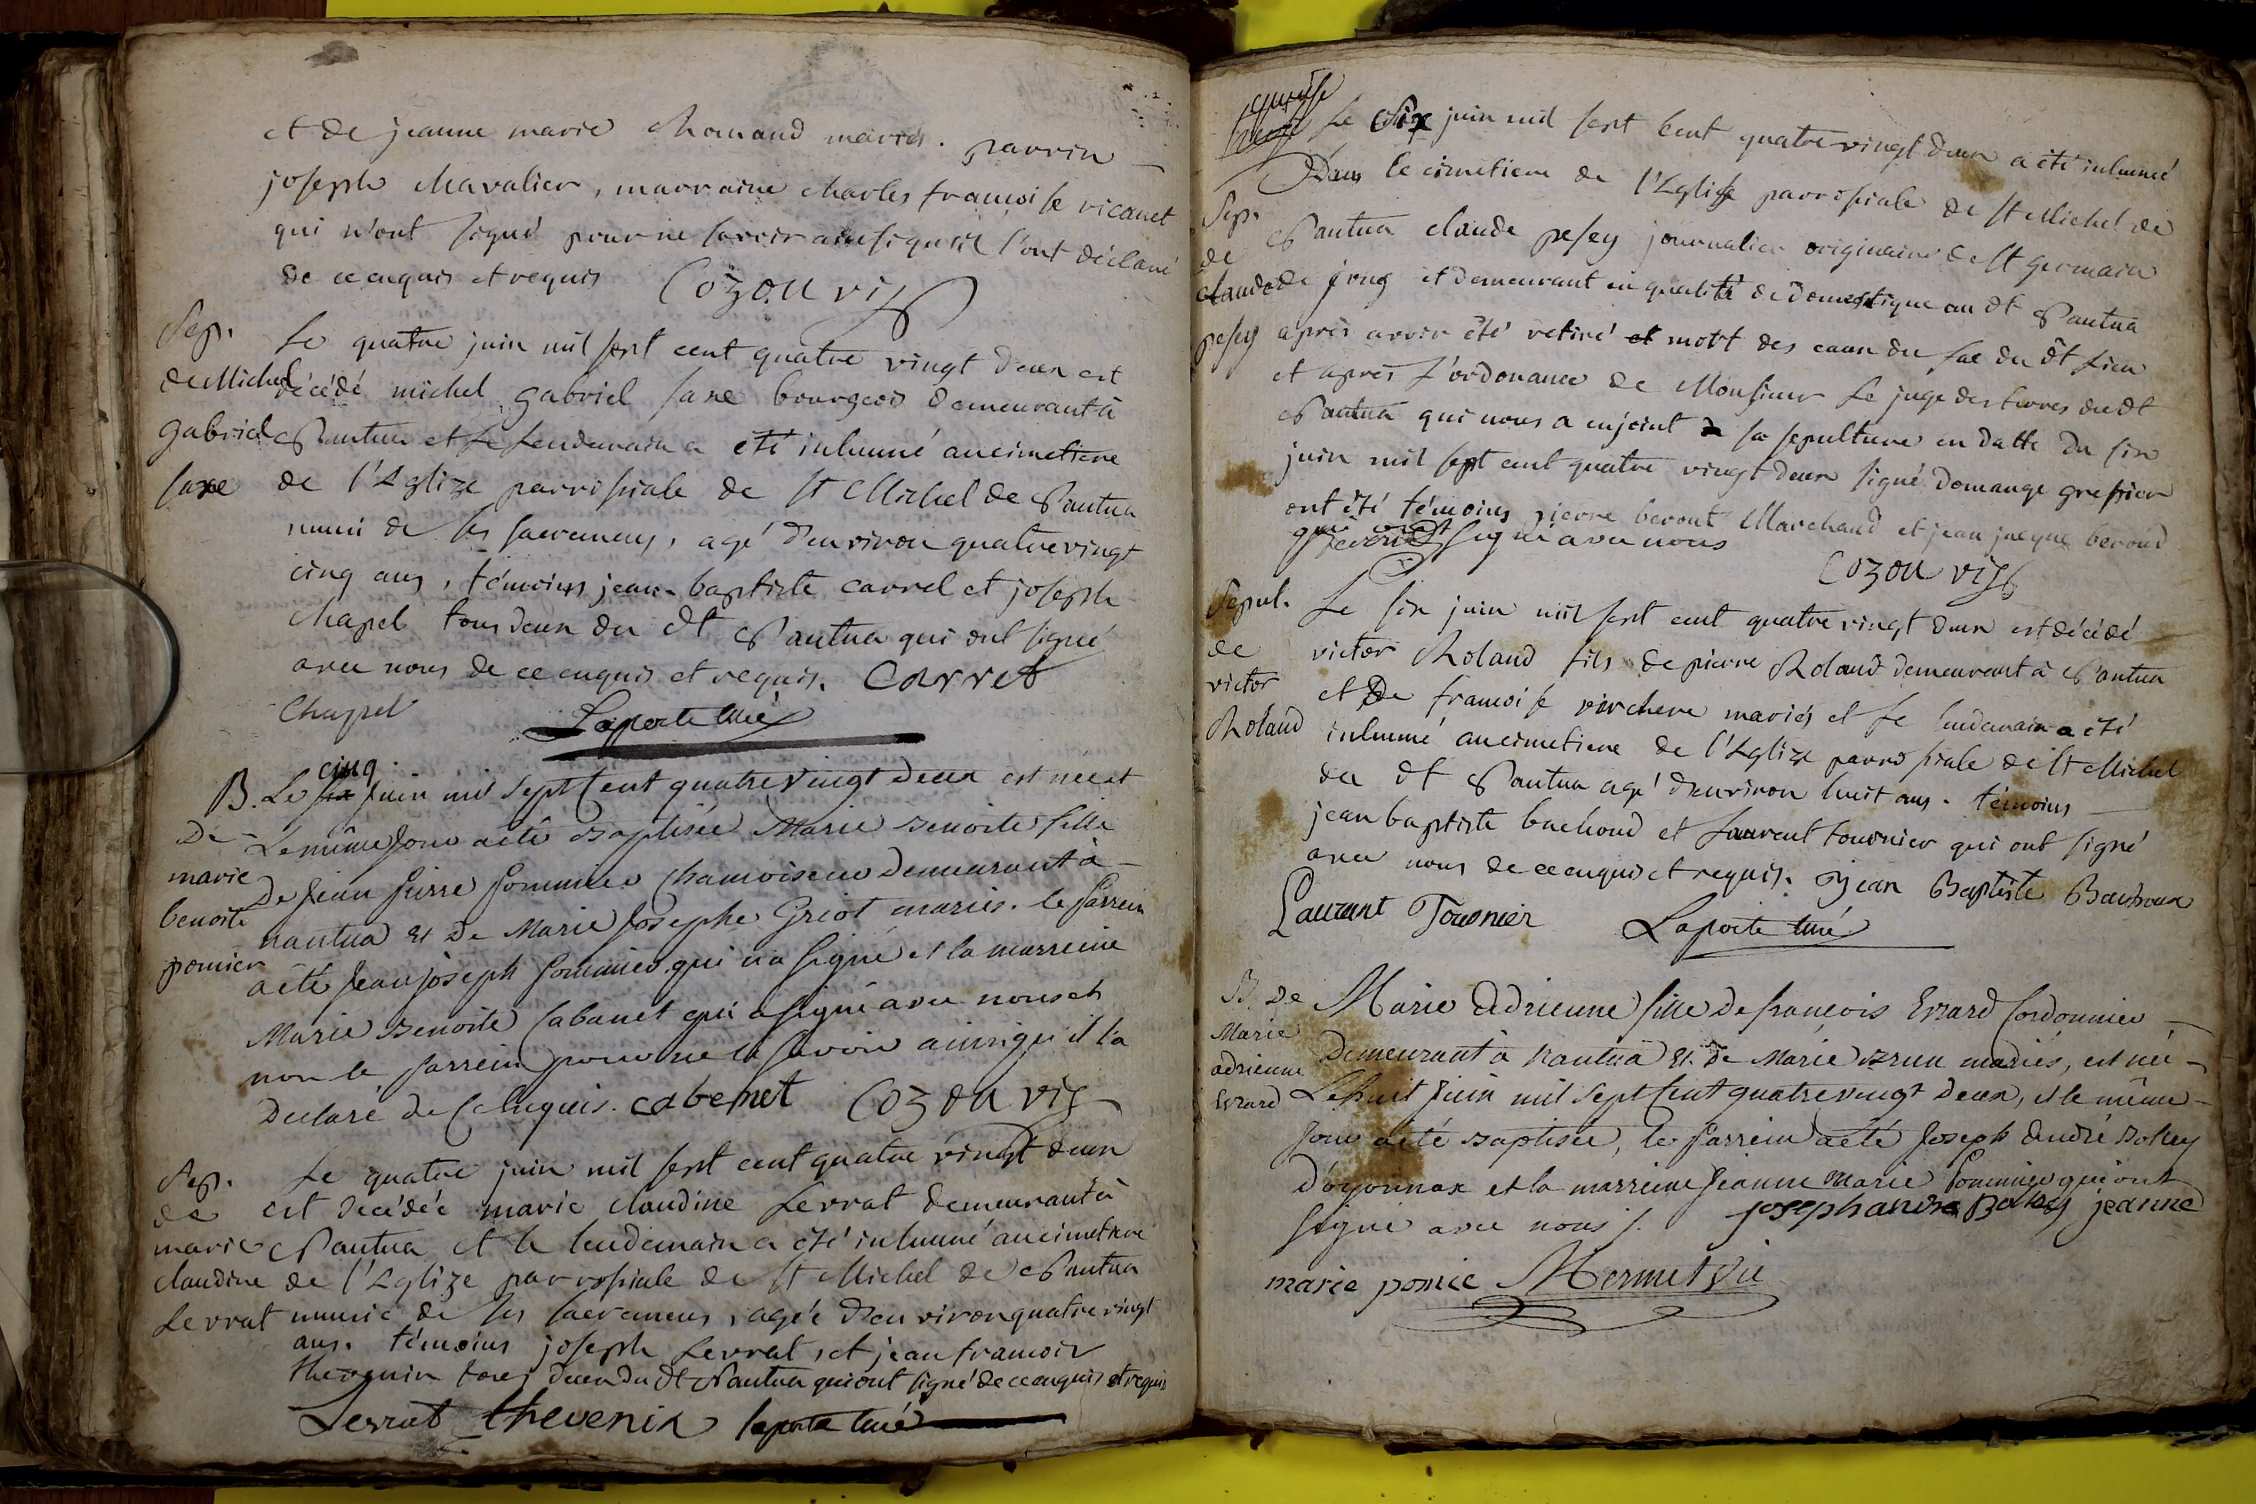 et de jeanne marie Chomand mariés. parrin
joseph chavalier, marraine charles francoise ricanet
qui n'ont signé pour ne savoir ainsi qu'ils l'ont déclaré
de ce enquis et requis Cozon vis
Sep.
de Michel
gabriel
saxe
Le quatre juin mil sept cent quatre vingt deux est
décédé michel gabriel saxe bourgeois demeurant à
Nantua et le lendemain a été inhumé au cimetiere
de l'Eglize parroissiale de St Michel de Nantua
muni de ses sacremens, agé d'environ quatre vingt
cinq ans, témoins jean-baptiste carrel et joseph
chapel tous deux du dt Nantua qui ont signé
avec nous de ce enquis et requis. Carret
Chapel Laporte curé
B.
De
marie
benoite
pomier
cinq
Le six juin mil sept Cent quatre vingt deux est née et
Le même jour a été Baptisée Marie Benoite fille
De Jean Pierre Pommier Chamoiseur demeurant à
nantua et De Marie Josephe Griot mariés. le Parrein
a été Jean joseph Pommier qui n'a signé et la marreine
Marie Benoite Cabanet qui a signé avec nous et
non le Parrein pour ne le savoir ainsi qu'il l'a
Déclaré de Ce Enquis. cabernet Cozon vis
Sep.
de
marie
claudine
Levrat
Le quatre juin mil sept cent quatre vingt deux
est décédée marie claudine Levrat demeurant à
Nantua et le lendemain a été inhumé au cimetiere
de l'Eglize parroissiale de St Michel de Nantua
munie de ses sacremens, agée d'environ quatre vingt
ans. témoins joseph Levrat, et jean francois
thevenin tous deux du dt Nantua qui ont signé de ce enquis et requis
Levrat thevenin laporte curé
Sep.
de
claude
pesey
Le Six juin mil sept cent quatre vingt deux a été inhumé
Dans le cimetiere de l'Eglise parroissiale de St Michel de
Nantua claude pesey journalier originaire de St germain
de joug et demeurant en qualité de domestique au dt Nantua
après avoir été retiré et mort des eaux du lac du dt Lieu
et après L'ordonance de Monsieur Le juge des terres du dt
Nantua qui nous a enjoint sa sepulture en datte du six
juin mil sept cent quatre vingt deux signé Domange greffier
ont été témoins pierre beroud Marchand et jean jacque beroud
qui ont signé avec nous
Cozon vis
Sepul.
de
victor
Roland
Le six juin mil sept cent quatre vingt deux est décédé
victor Roland fils de pierre Roland demeurant à Nantua
et De francoise varchere mariés et le lendemain a été
inhumé au cimetiere de l'Eglize parroissiale de St Michel
du dt Nantua agé d'environ huit ans. témoins
jean baptiste bachoud et Laurent tournier qui ont signé
avec nous de ce enquis et requis. jean Baptiste Bachoux
Laurant Tournier Laporte curé
B. De
Marie
adrienne
Evrard
Marie Adrienne fille de françois Evrard Cordonnier
Demeurant à nantua et de Marie Brun mariés, est née
Le huit Juin mil sept Cent quatre vingt deux, et le même
Jour a été Baptisée, le Parrein a été Joseph André Bolley
D'oyonnax et la marreine Jeanne Marie Pommier qui ont
Signé avec nous. joseph andre Bolley jeanne
marie pomie Mermet Vic